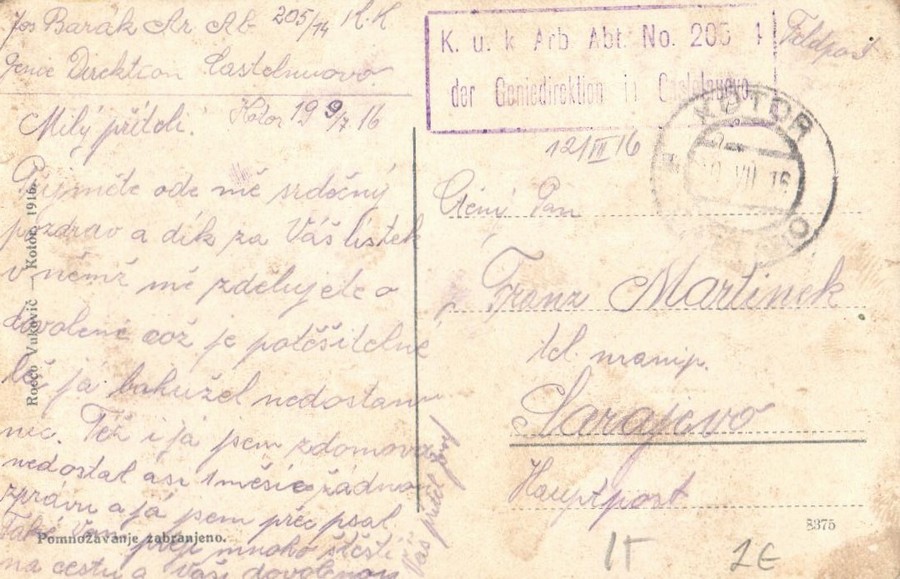 Jos Barák Ar. Ab. 205/14 K.K
Genie Direktion Castelnuovo
Kotor 19 9/7 16
Milý příteli!
Přijměte ode mě srdečný
pozdrav a dík za Váš lístek
v němž mě zdělujete o
dovolené což je potěšitelné
leč já bohužel nedostanu
nic. Též i já jsem z domova
nedostal asi 1 měsíc žádnou
zprávu a já jsem přec psal
Také Vam přeji mnoho štěstí
na cestu a Vaši dovolenou
Váš přítel Josef
Roečo Vuković — Kotor, 1916.
Pomnožavanje zabranjeno.
K. u. k. Arb. Abt. No. 205 4
der Geniedirektion in Castelnuovo.
Feldpost
KOTOR
10 VII 16
12/VII 16
Ctěný Pan
Franz Martinek
tel. manip.
Sarajevo
Hauptpost
8375
1T
2E